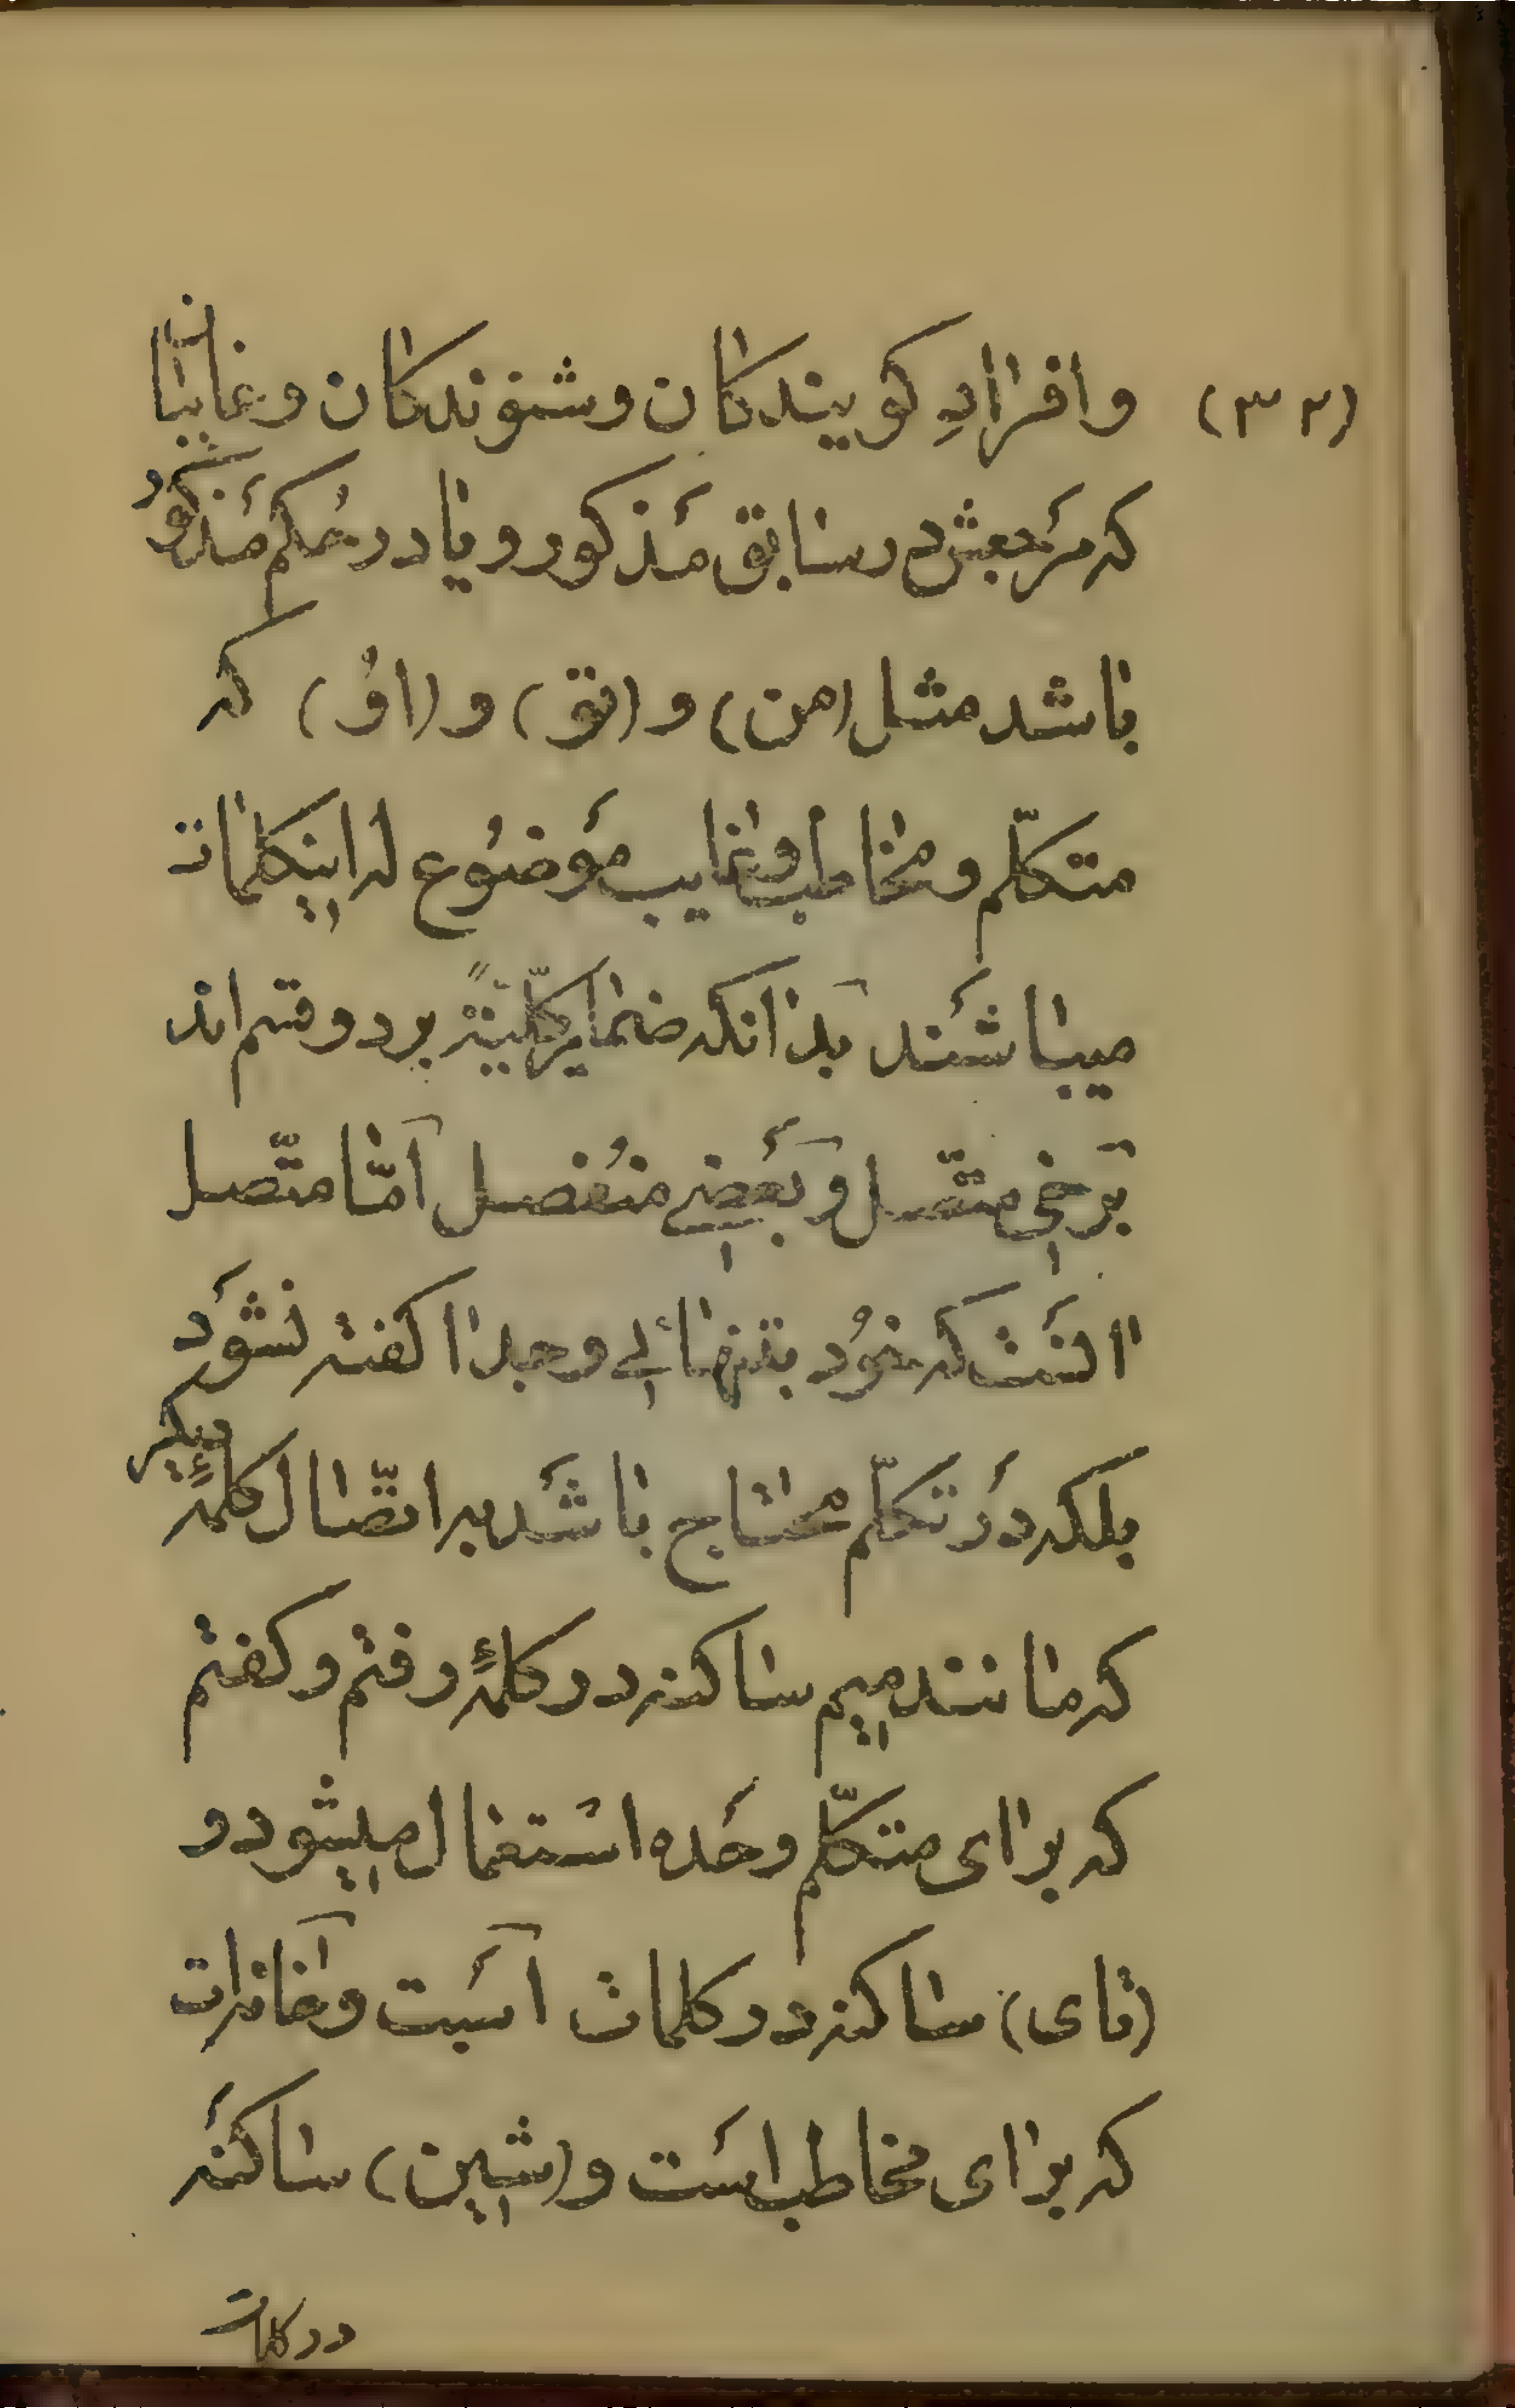 (۳۲) وافرادِ کویندکان وشنوندکان وغایبان
که مَرجعش در سابق مَذکور و یا در حُکم مَذکور
باشد مثل (من) و (تو) و (اوُ) که
متکلّم ومخاطب وغایب مَوضوُع له اینکلمات
میباشَند بَدانکه ضمایر کلّیّةً بر دو قسم اند
بَرخی متّصل و بَعضے منُفصل اَمّا متّصل
اانَست که خوُد بتنهائے وجدا کفته نشوَد
بلکه دَر تکلّم محتاج باشَد به اتّصال کلمهٔ دیکر
که مانند میم ساکنه در کلمهٔ رفتم و کفتم
که برای متکلّم وحَده اسَتعمال میشود و
(تای) ساکنه در کلمات اسَبت وخانه‌ات
که برای مخاطب اسَت و (شین) ساکنَه
در کلمات